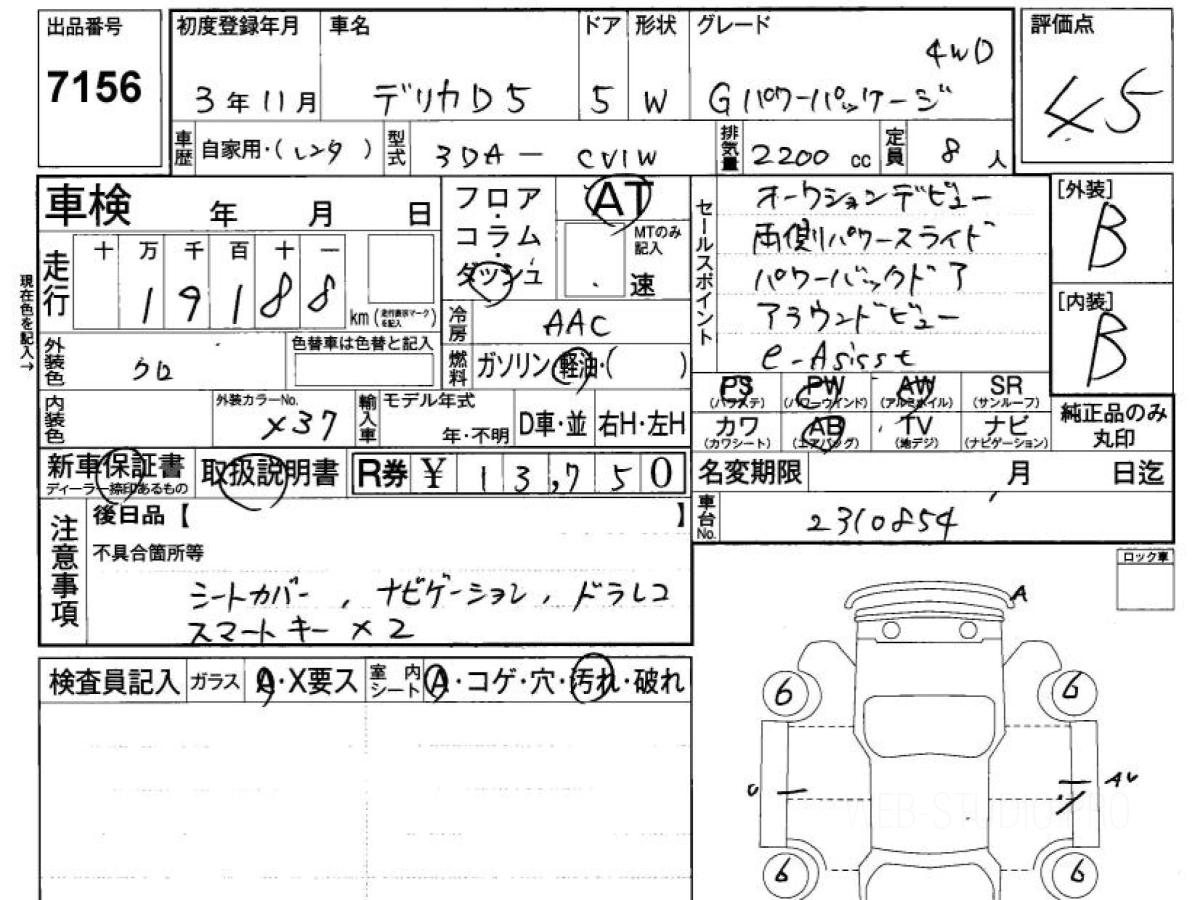 出品番号 初度登録年月 車名 ドア 形状 グレード 評価点
7156 3年11月 デリカD5 5 W Gパワーパッケージ 4WD 4.5
車歴 自家用・(レンタ) 型式 3DA-CV1W 排気量 2200cc 定員 8人
車検 年 月 日
走行 十 万 千 百 十 一
19188 km (走行表示マークを記入)
現在色を記入→
外装色 クロ 色替車は色替と記入
内装色 外装カラーNo. X37 輸入車 モデル年式 年・不明 D車・並 右H・左H
フロア・コラム・ダッシュ AT MTのみ記入 速
冷房 AAC
燃料 ガソリン・軽油・( )
セールスポイント
オークションデビュー
両側パワースライド
パワーバックドア
アラウンドビュー
e-Asisst
[外装] B
[内装] B
PS PW AW SR
(パワステ) (パワーウインド) (アルミホイル) (サンルーフ)
カワ AB TV ナビ
(カワシート) (エアバッグ) (地デジ) (ナビゲーション)
純正品のみ
丸印
新車保証書 取扱説明書 R券 ¥ 13,750
ディーラー捺印あるもの
名変期限 月 日迄
車台No. 2310854
注意事項
後日品【 】
不具合箇所等
シートカバー,ナビゲーション,ドラレコ
スマートキー×2
ロック車
検査員記入 ガラス A・X要ス 室内シート A・コゲ・穴・汚れ・破れ
A
6 6
U AU
6 6
WEB-STUDIO.PRO